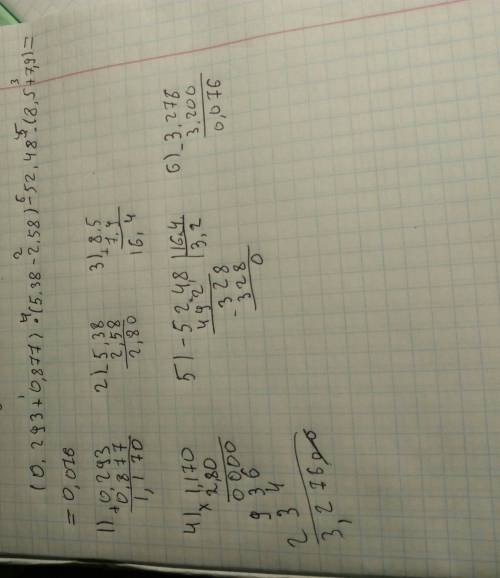 (0,293+¹0,877)·⁴(5,38-²2,58)-⁶52,48:⁵(8,5+³7,9)=
=0,076
1) +0,293
0,877
1,170
2) -5,38
2,58
2,80
3) +8,5
7,9
16,4
4) ×1,170
2,80
0000
936
234
3,27600
5) -52,48 |16,4
492 |3,2
-328
328
0
6) -3,276
3,200
0,076